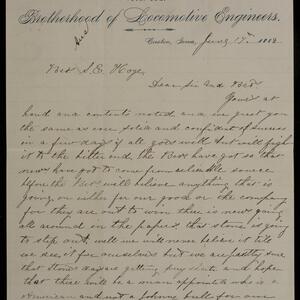 Brotherhood of Locomotive Engineers.
Creston, Iowa, June 17th 1888
Bro S. E. Hoge,
Dear Sir and Bro
Yours at
hand and contents noted and we greet you
the same as ever solid and confident of success
in a few days if all goes well but will fight
it to the bitter end. the Boys have got so that
news have got to come from reliable source
before the Boys will believe anything that is
going on either for our good or the company
for they are out to win there is news going
all around in the papers that stone is going
to step out, will we will never believe it till
we see it for ourselves but we are pretty sure
that Stones days are getting short and hope
that there will be a man appointed who is a
American and not a Johnny bull for our